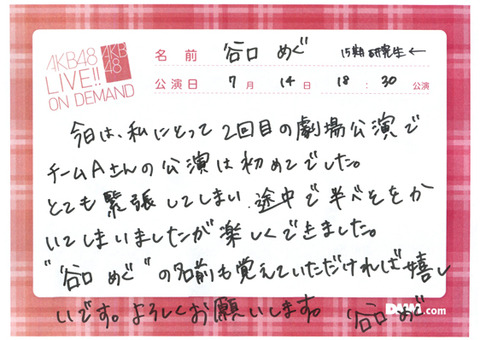 AKB48
LIVE!!
ON DEMAND
AKB
48
名前 谷口 めぐ 15期研究生←
公演日 7月14日 18:30 公演
今日は、私にとって2回目の劇場公演で
チームAさんの公演は初めてでした。
とても緊張してしまい、途中で半べそをか
いてしまいましたが楽しくできました。
"谷口 めぐ"の名前も覚えていただければ嬉し
いです。よろしくお願いします。 谷口 めぐ
DMM.com